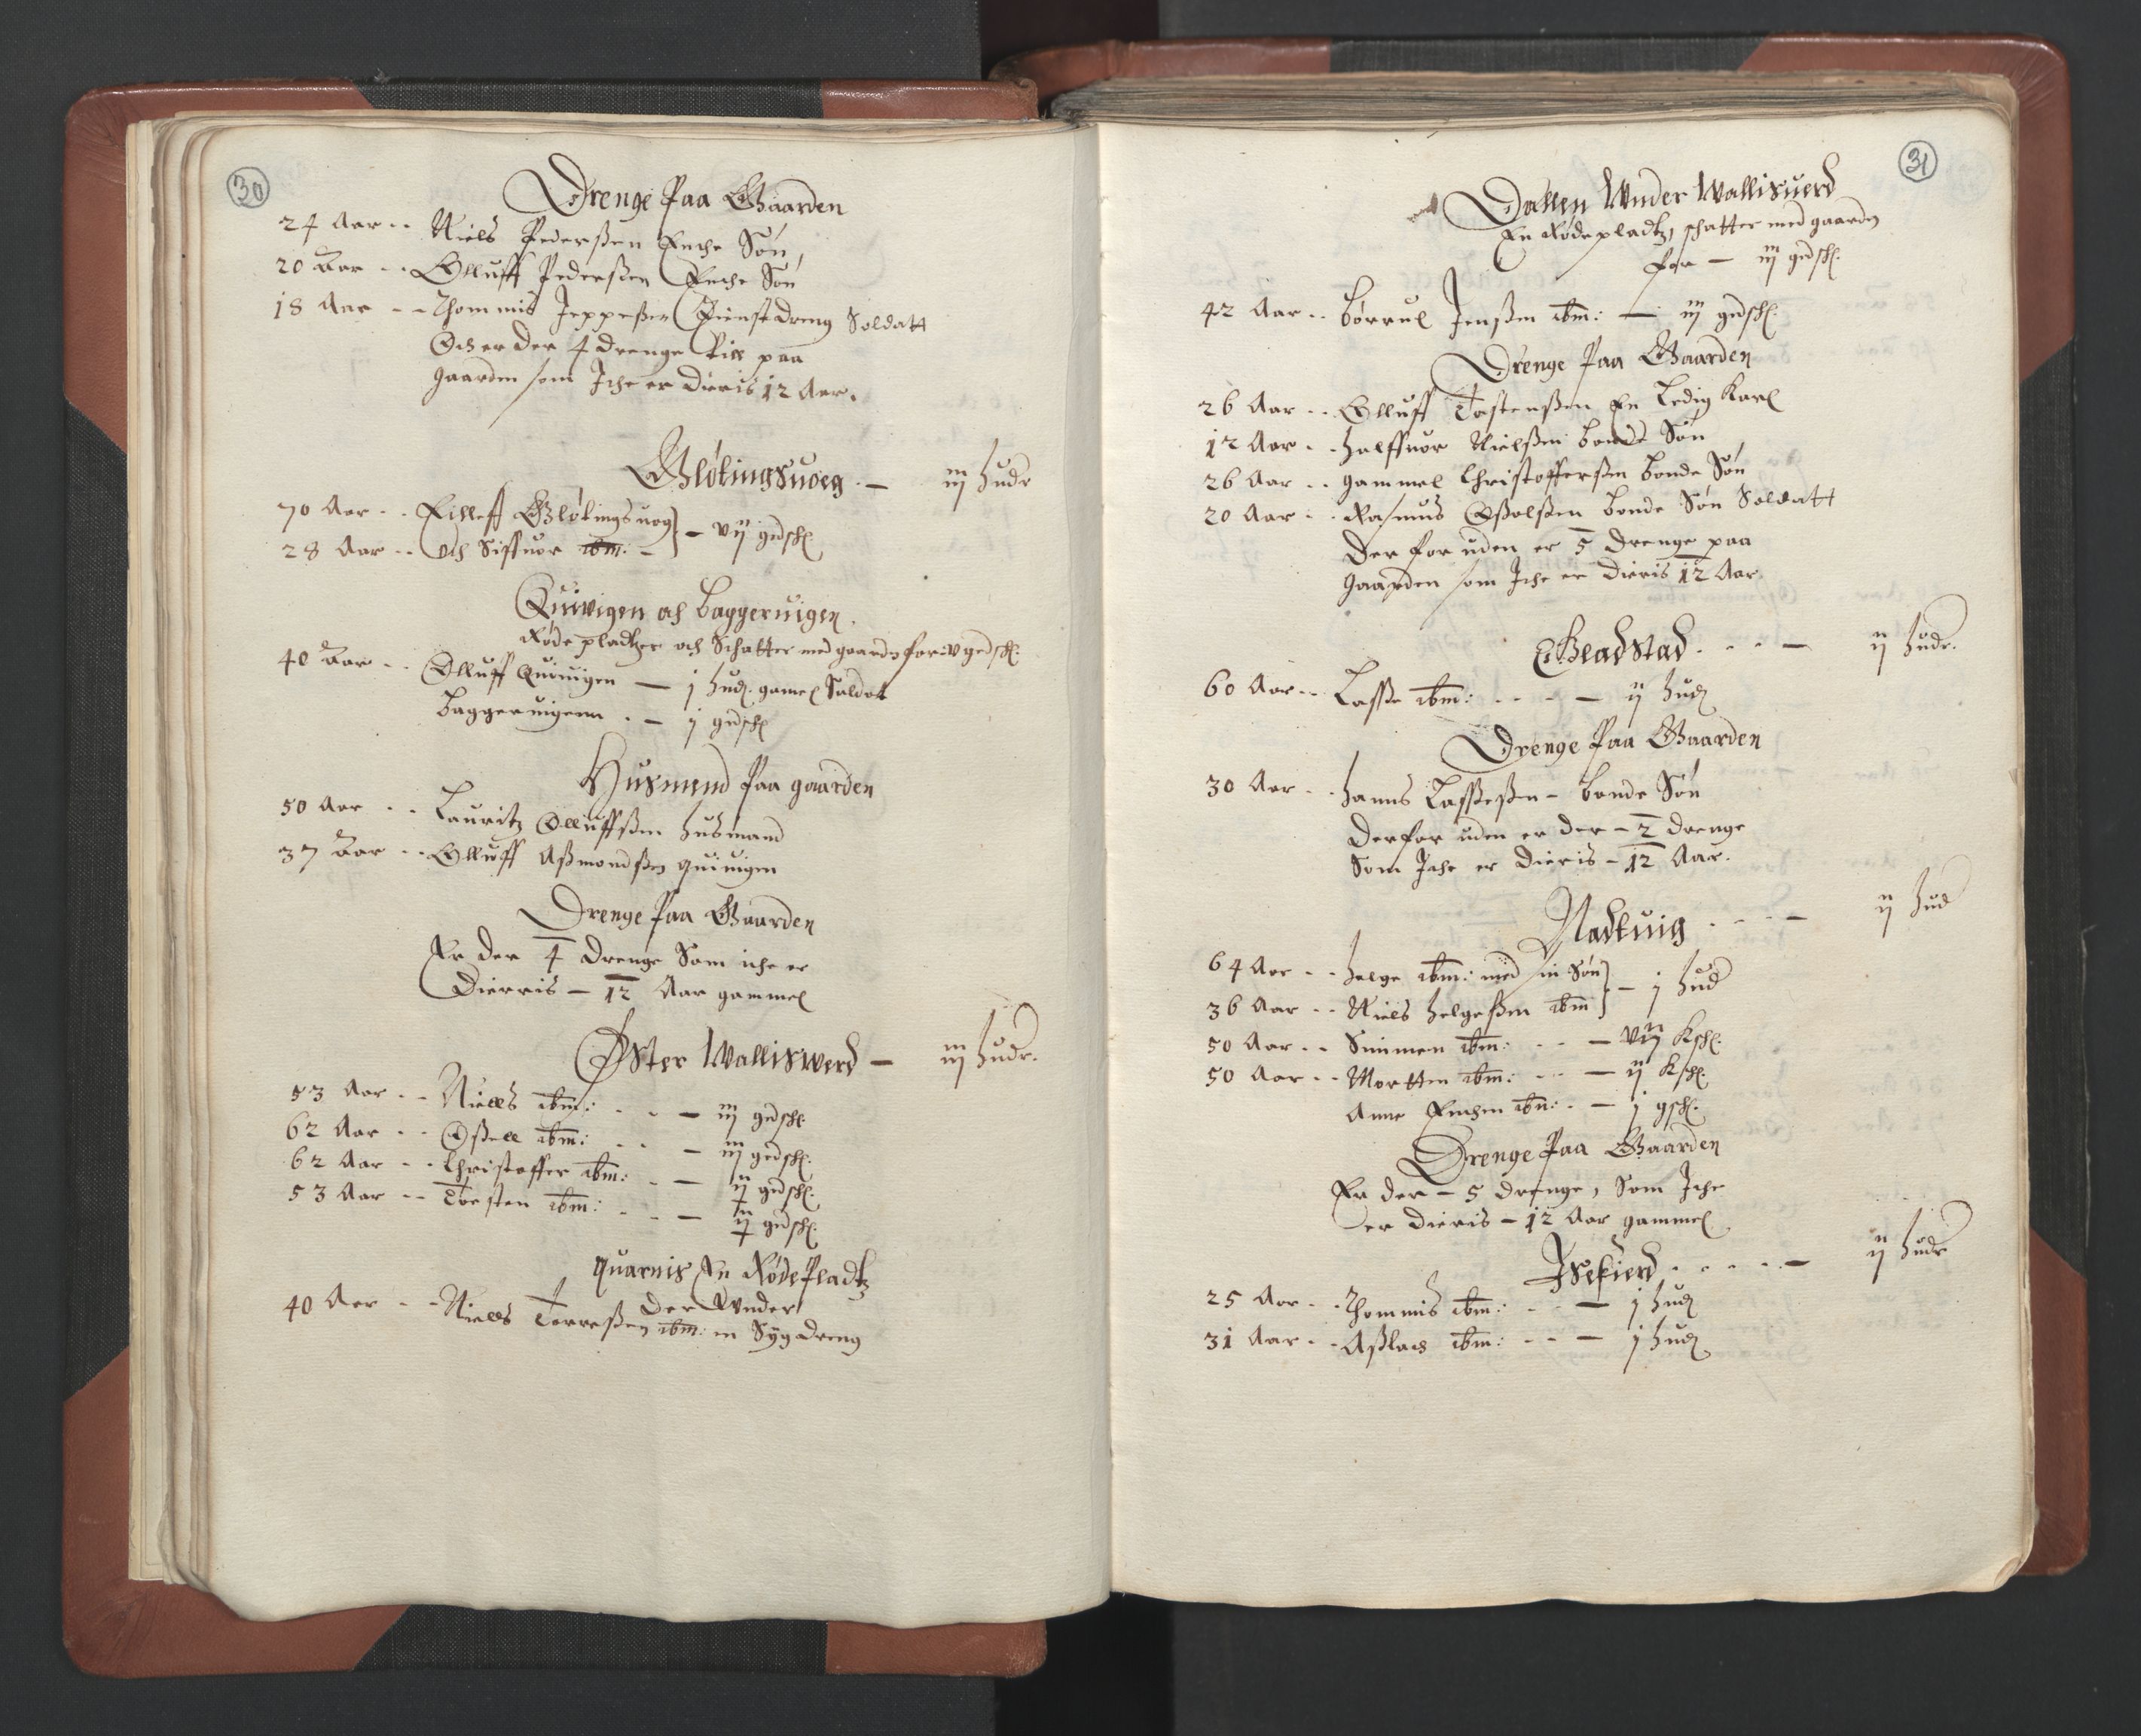 30
Drenge Paa Gaarden
24 Aar -- Niels Pederßen Enche Søn,
20 Aar -- Olluff Pederßen Enche Søn
18 Aar -- Thommis Jeppeßen Tienst dreng Soldatt
Och er der 4 drenge till paa
gaarden som Iche er Dieris 12 Aar.
Gløtingsuoeg - iij hudr
70 Aar -- Eilleff Gløtings uog
28 Aar -- Och Siffuor ibm: - vij gedsch
Quivigen och Baggeruigen.
Røde pladtzer och Schatter med gaarden for: v gedsch:
40 Aar -- Olluff Quiuigen - j hud. gamel Soldat
Baggeruigenn - j gedsch
Husmend Paa gaarden
50 Aar -- Lauritz Olluffßen husmand
37 Aar -- Olluff Aßmondßen quiuigen
Drenge Paa Gaarden
Er der 4 drenge Som iche er
Dierris - 12 Aar gammel
Øster Walliswerd - iij hudr.
53 Aar -- Niells ibm: - iij gedsch
62 Aar -- Oßell ibm: - iij gedsch:
62 Aar -- Christoffer ibm: - ij gedsch:
53 Aar -- Torsten ibm: - ij gedsch:
Quarnis En Røde Pladtz
Der Wnder
40 Aar -- Niells Torreßen ibm: en Syg dreng
31
Dallen Wnder Wallisuerd
En Røde pladtz, schatter med gaarden
for - iij gedsch:
42 Aar -- Børruel Jenßen ibm: - iij gedsch:
Drenge Paa Gaarden
26 Aar -- Olluff Tostenßen En Ledig Karl
12 Aar -- Halffuor Nielßen bonde Søn
26 Aar -- Gammel Christofferßen bonde Søn
20 Aar -- Rasmus Oßelßen bonde Søn Soldatt
Der for uden er 5 drenge paa
Gaarden som Iche er Dieris 12 Aar
Gladstad - ij hudr.
60 Aar -- Laße ibm: - ij hud
Drenge Paa Gaarden
30 Aar -- Hanns Laßeßen - bonde Søn
Der for uden er der - 2 drenge
Som Iche er Dieris - 12 Aar.
Nadtuig - ij hud
64 Aar -- Helge ibm: med sin Søn
36 Aar -- Niels Helgeßen ibm - j hud
50 Aar -- Simmen ibm: - vij Ksch:
50 Aar -- Mortten ibm: - ij Ksch:
Anne Enchen ibm: - j gsch:
Drenge Paa Gaarden
Er der - 5 drenge, Som Iche
er Dieris - 12 Aar gammel
Isefierd - ij hudr
25 Aar -- Thommis ibm: - j hud
31 Aar -- Aßlach ibm: - j hud